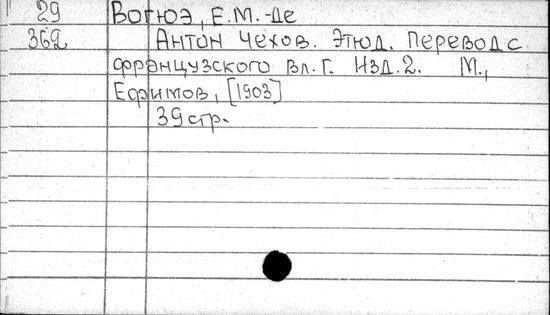 29 Вогюэ, Е.М.-де
369 Антон Чехов. Этюд. Перевод с
французского Вл.Г. Изд.2. М.,
Ефимов, [1903]
39 стр.